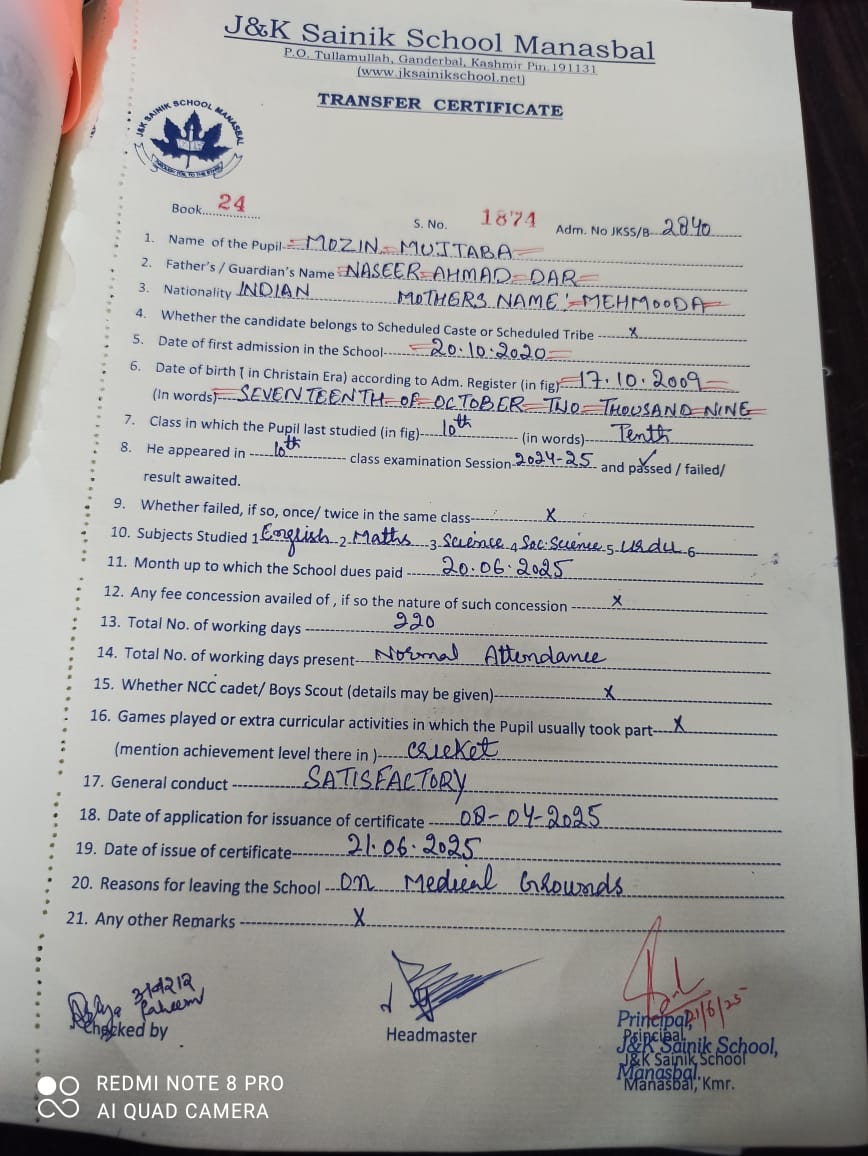 J&K Sainik School Manasbal
P.O. Tullamullah, Ganderbal, Kashmir Pin.191131
(www.jksainikschool.net)
TRANSFER CERTIFICATE
J&K SAINIK SCHOOL MANASBAL
Book......24............ S. No. 1874 Adm. No JKSS/B--2840
1. Name of the Pupil-=MOZIN=MUJTABA=
2. Father's / Guardian's Name =NASEER=AHMAD=DAR=
3. Nationality INDIAN MOTHERS NAME:=MEHMOODA=
4. Whether the candidate belongs to Scheduled Caste or Scheduled Tribe ------x
5. Date of first admission in the School------=20.10.2020=
6. Date of birth [ in Christain Era) according to Adm. Register (in fig)=17.10.2009=
(In words)=SEVENTEENTH=OF=OCTOBER=TWO=THOUSAND=NINE=
7. Class in which the Pupil last studied (in fig)---10th---------- (in words)-----Tenth
8. He appeared in -----10th---------- class examination Session-2024-25 and passed / failed/
result awaited.
9. Whether failed, if so, once/ twice in the same class----------x
10. Subjects Studied 1 English 2 Maths 3 Science 4 Soc. Science 5 Urdu 6
11. Month up to which the School dues paid ------20.06.2025
12. Any fee concession availed of , if so the nature of such concession --------x
13. Total No. of working days -------------220
14. Total No. of working days present---Normal Attendance
15. Whether NCC cadet/ Boys Scout (details may be given)-------------x
16. Games played or extra curricular activities in which the Pupil usually took part----x
(mention achievement level there in )-----cricket
17. General conduct ----------SATISFACTORY
18. Date of application for issuance of certificate -----08-04-2025
19. Date of issue of certificate--------21.06.2025
20. Reasons for leaving the School --on Medical Grounds
21. Any other Remarks ---------------x
Checked by
Headmaster
21/6/25
Principal,
Principal
J&K Sainik School,
J&K Sainik School
Manasbal.
Manasbal, Kmr.
REDMI NOTE 8 PRO
AI QUAD CAMERA